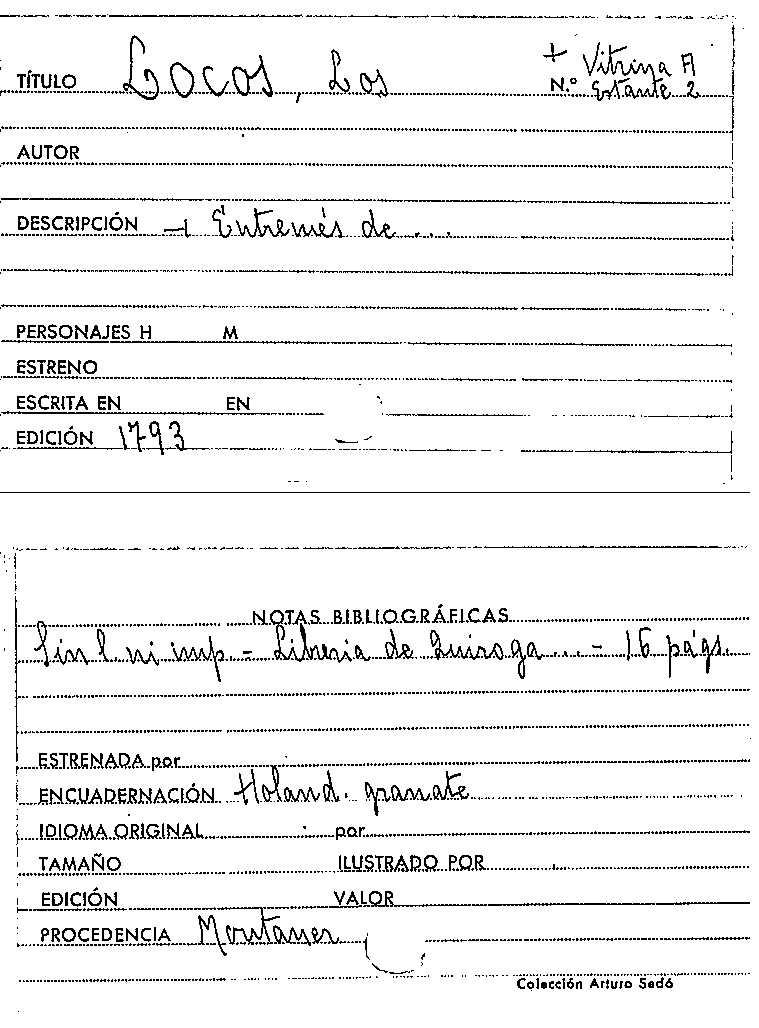 TÍTULO Locos, Los + Vitrina A
N.º Estante 2
AUTOR
DESCRIPCIÓN Entremés de...
PERSONAJES H M
ESTRENO
ESCRITA EN EN
EDICIÓN 1793
NOTAS BIBLIOGRÁFICAS
Sin l. ni imp. - Libreria de Quiroga ... - 16 págs.
ESTRENADA por
ENCUADERNACIÓN Holand. granate
IDIOMA ORIGINAL por
TAMAÑO ILUSTRADO POR
EDICIÓN VALOR
PROCEDENCIA Montaner
Colección Arturo Sedó